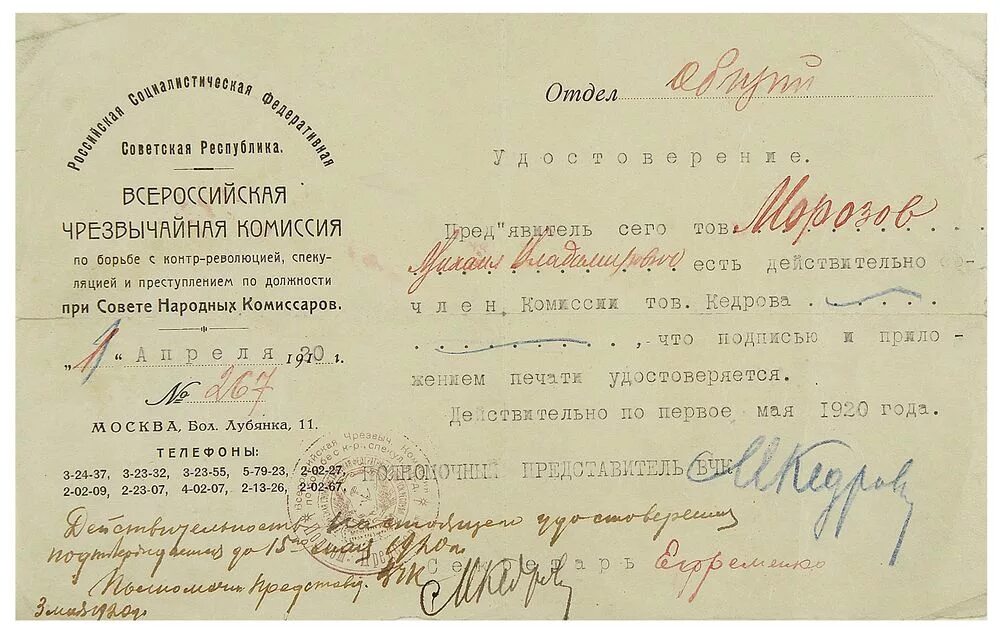 Российская Социалистическая Федеративная
Советская Республика.
ВСЕРОССИЙСКАЯ
ЧРЕЗВЫЧАЙНАЯ КОМИССИЯ
по борьбе с контр-революцией, спеку-
ляцией и преступлением по должности
при Совете Народных Комиссаров.
„1“ Апреля 1920 г.
№ 267
МОСКВА, Бол. Лубянка, 11.
ТЕЛЕФОНЫ:
3-24-37, 3-23-32, 3-23-55, 5-79-23, 2-02-27,
2-02-09, 2-23-07, 4-02-07, 2-13-26, 2-02-67,
Отдел Общий
Удостоверение.
Пред"явитель сего тов. Морозов
Михаил Владимирович есть действительно
член Комиссии тов. Кедрова
, что подписью и прило-
жением печати удостоверяется.
Действительно по первое мая 1920 года.
ПОЛНОМОЧНЫЙ ПРЕДСТАВИТЕЛЬ ВЧК
МКедров
Секретарь Ефременко
Действительность настоящего удостоверения
до 15 мая 1920 г.
Полномочн Представ. ВЧК
МКедров
3 мая 1920 г.